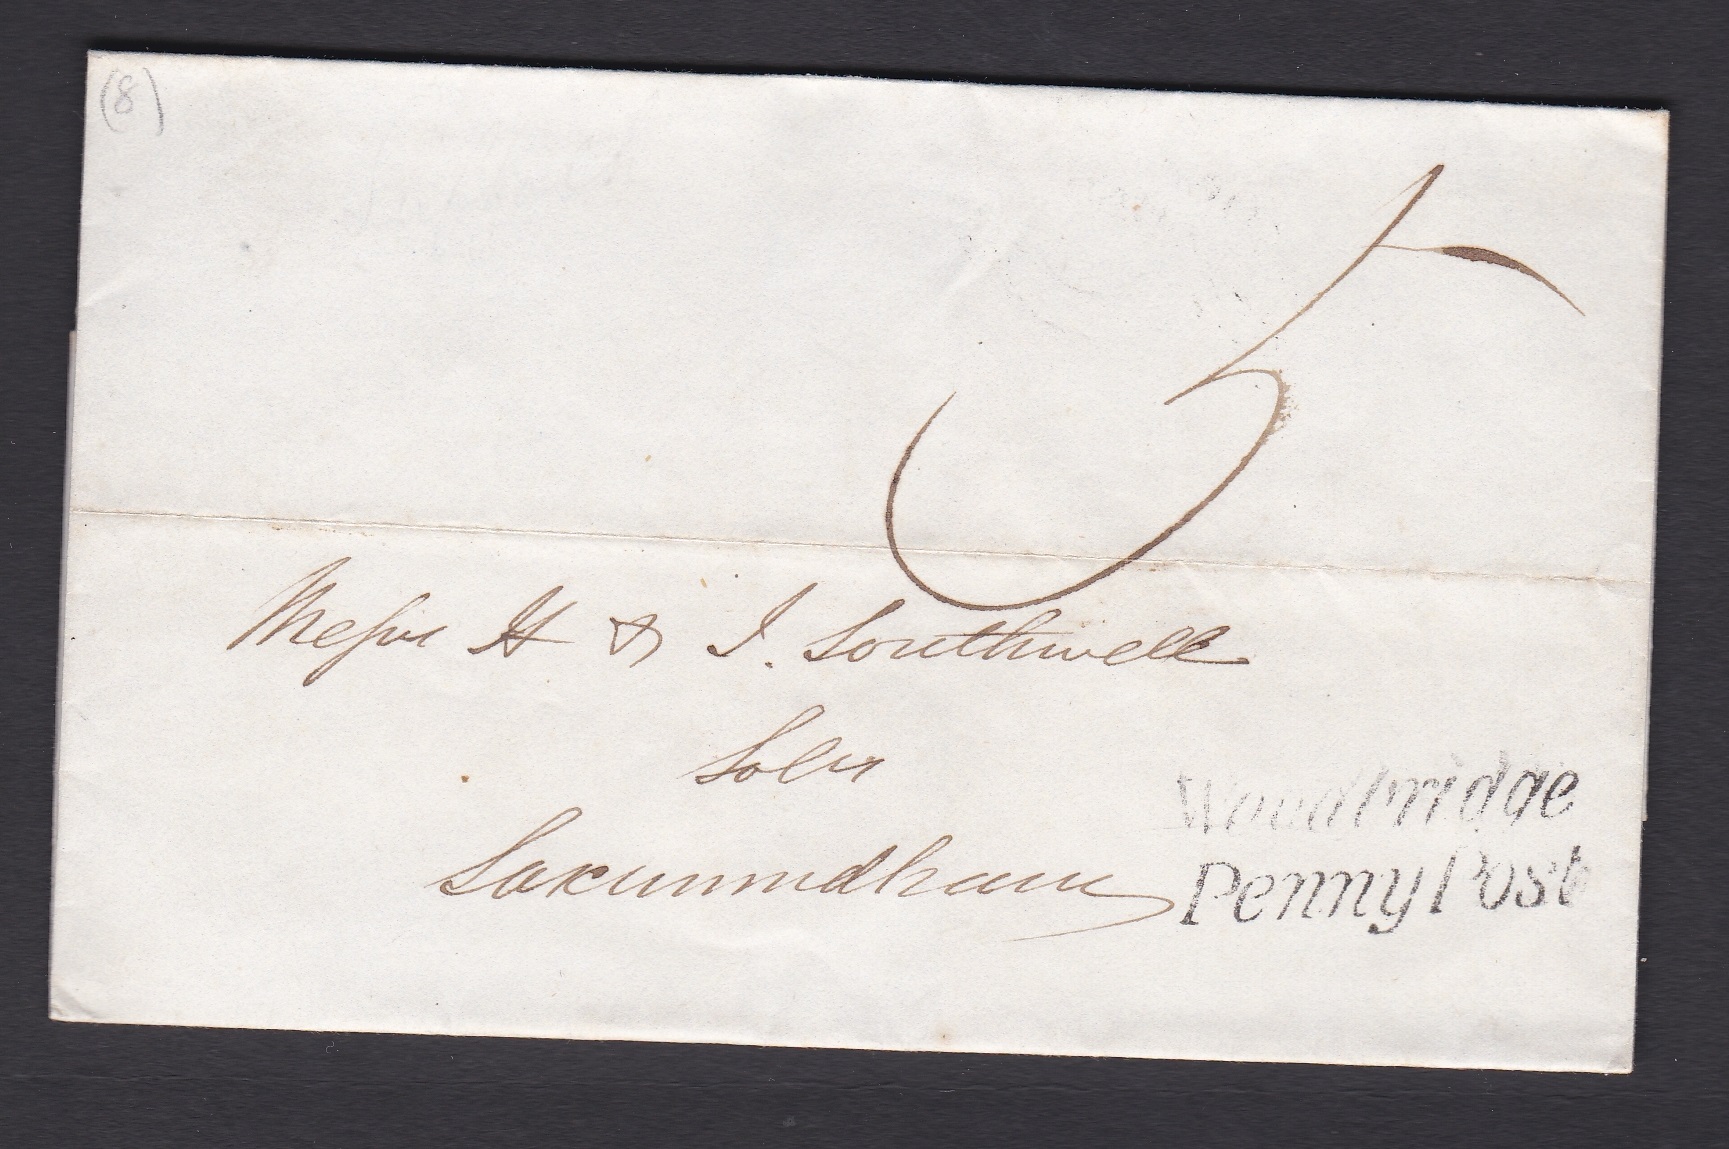 (8)
5
Messrs H & J. Southwell
Solrs
Saxmundham
Woodbridge
Penny Post